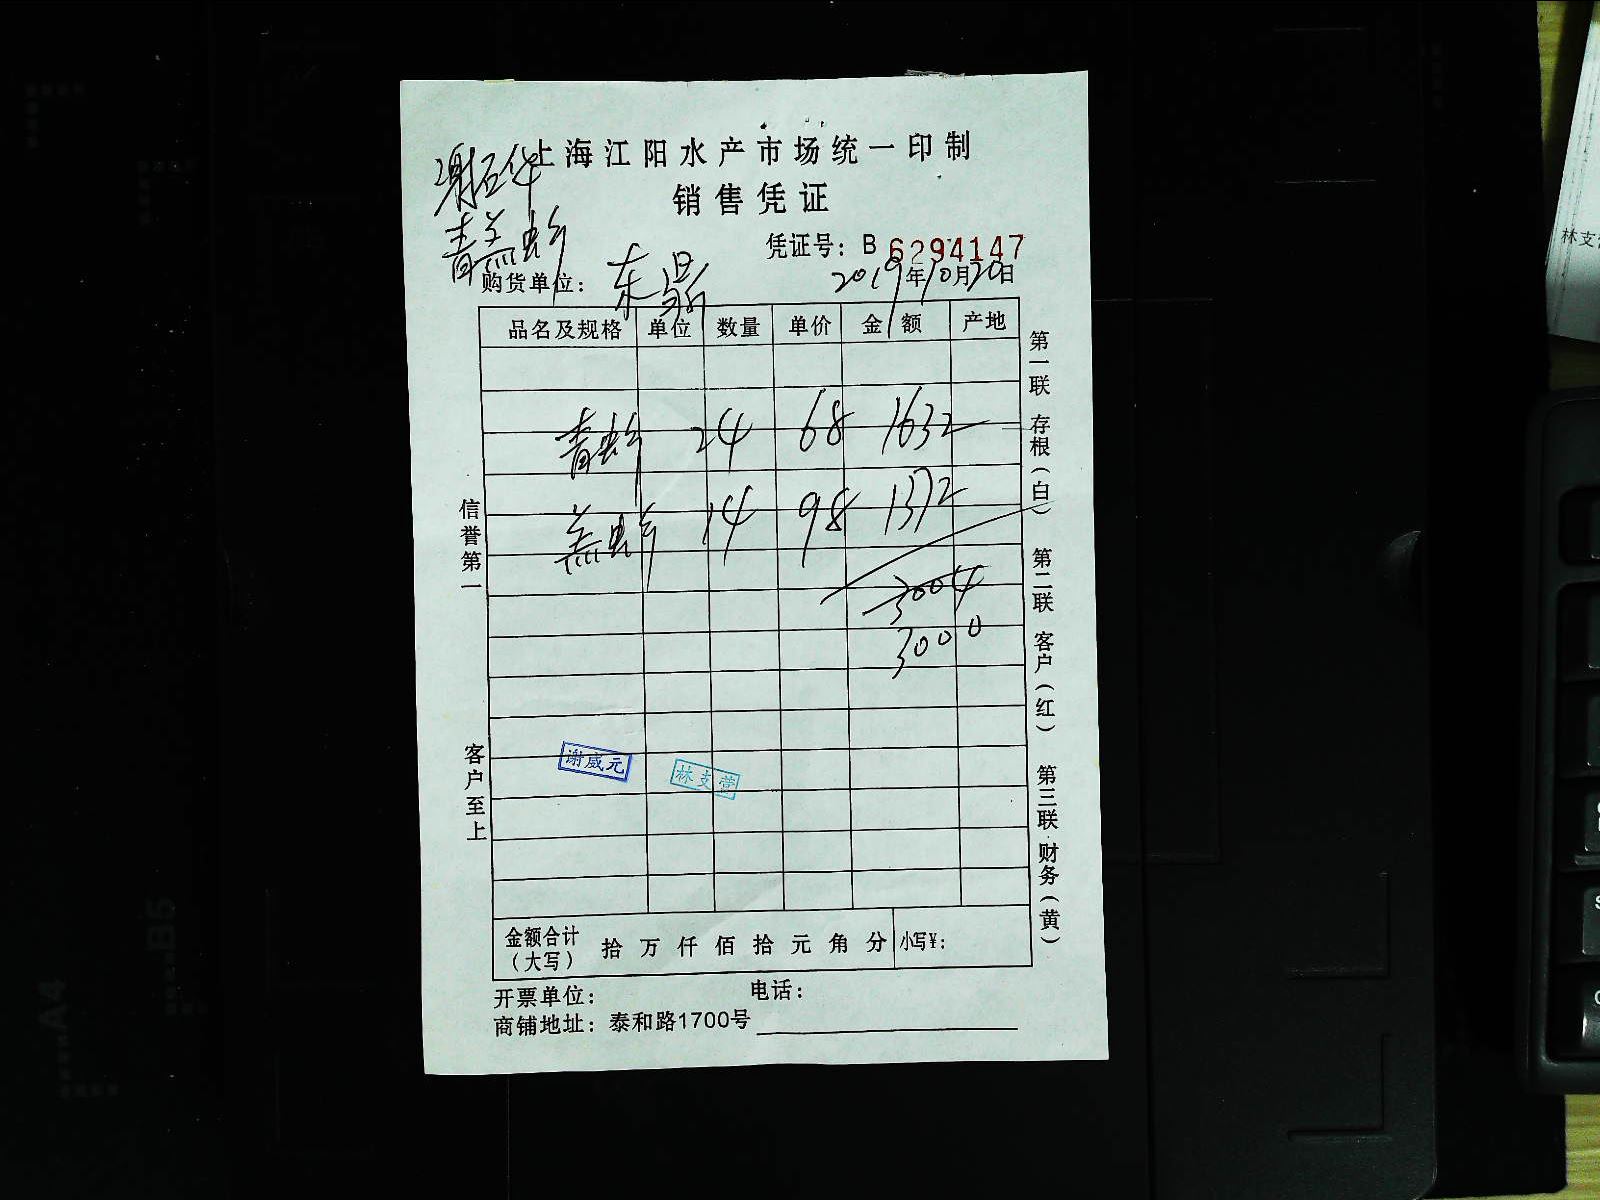 上海江阳水产市场统一印制
销售凭证
谢石华
青羔虾
凭证号：B 6294147
购货单位：东鼎
2019年10月20日
品名及规格 单位 数量 单价 金额 产地
青虾 24 68 1632
羔虾 14 98 1372
3004
3000
谢威元
林支营
信誉第一
客户至上
第一联 存根（白）
第二联 客户（红）
第三联 财务（黄）
金额合计（大写） 拾 万 仟 佰 拾 元 角 分 小写¥：
开票单位： 电话：
商铺地址：泰和路1700号
林支
A4
B5